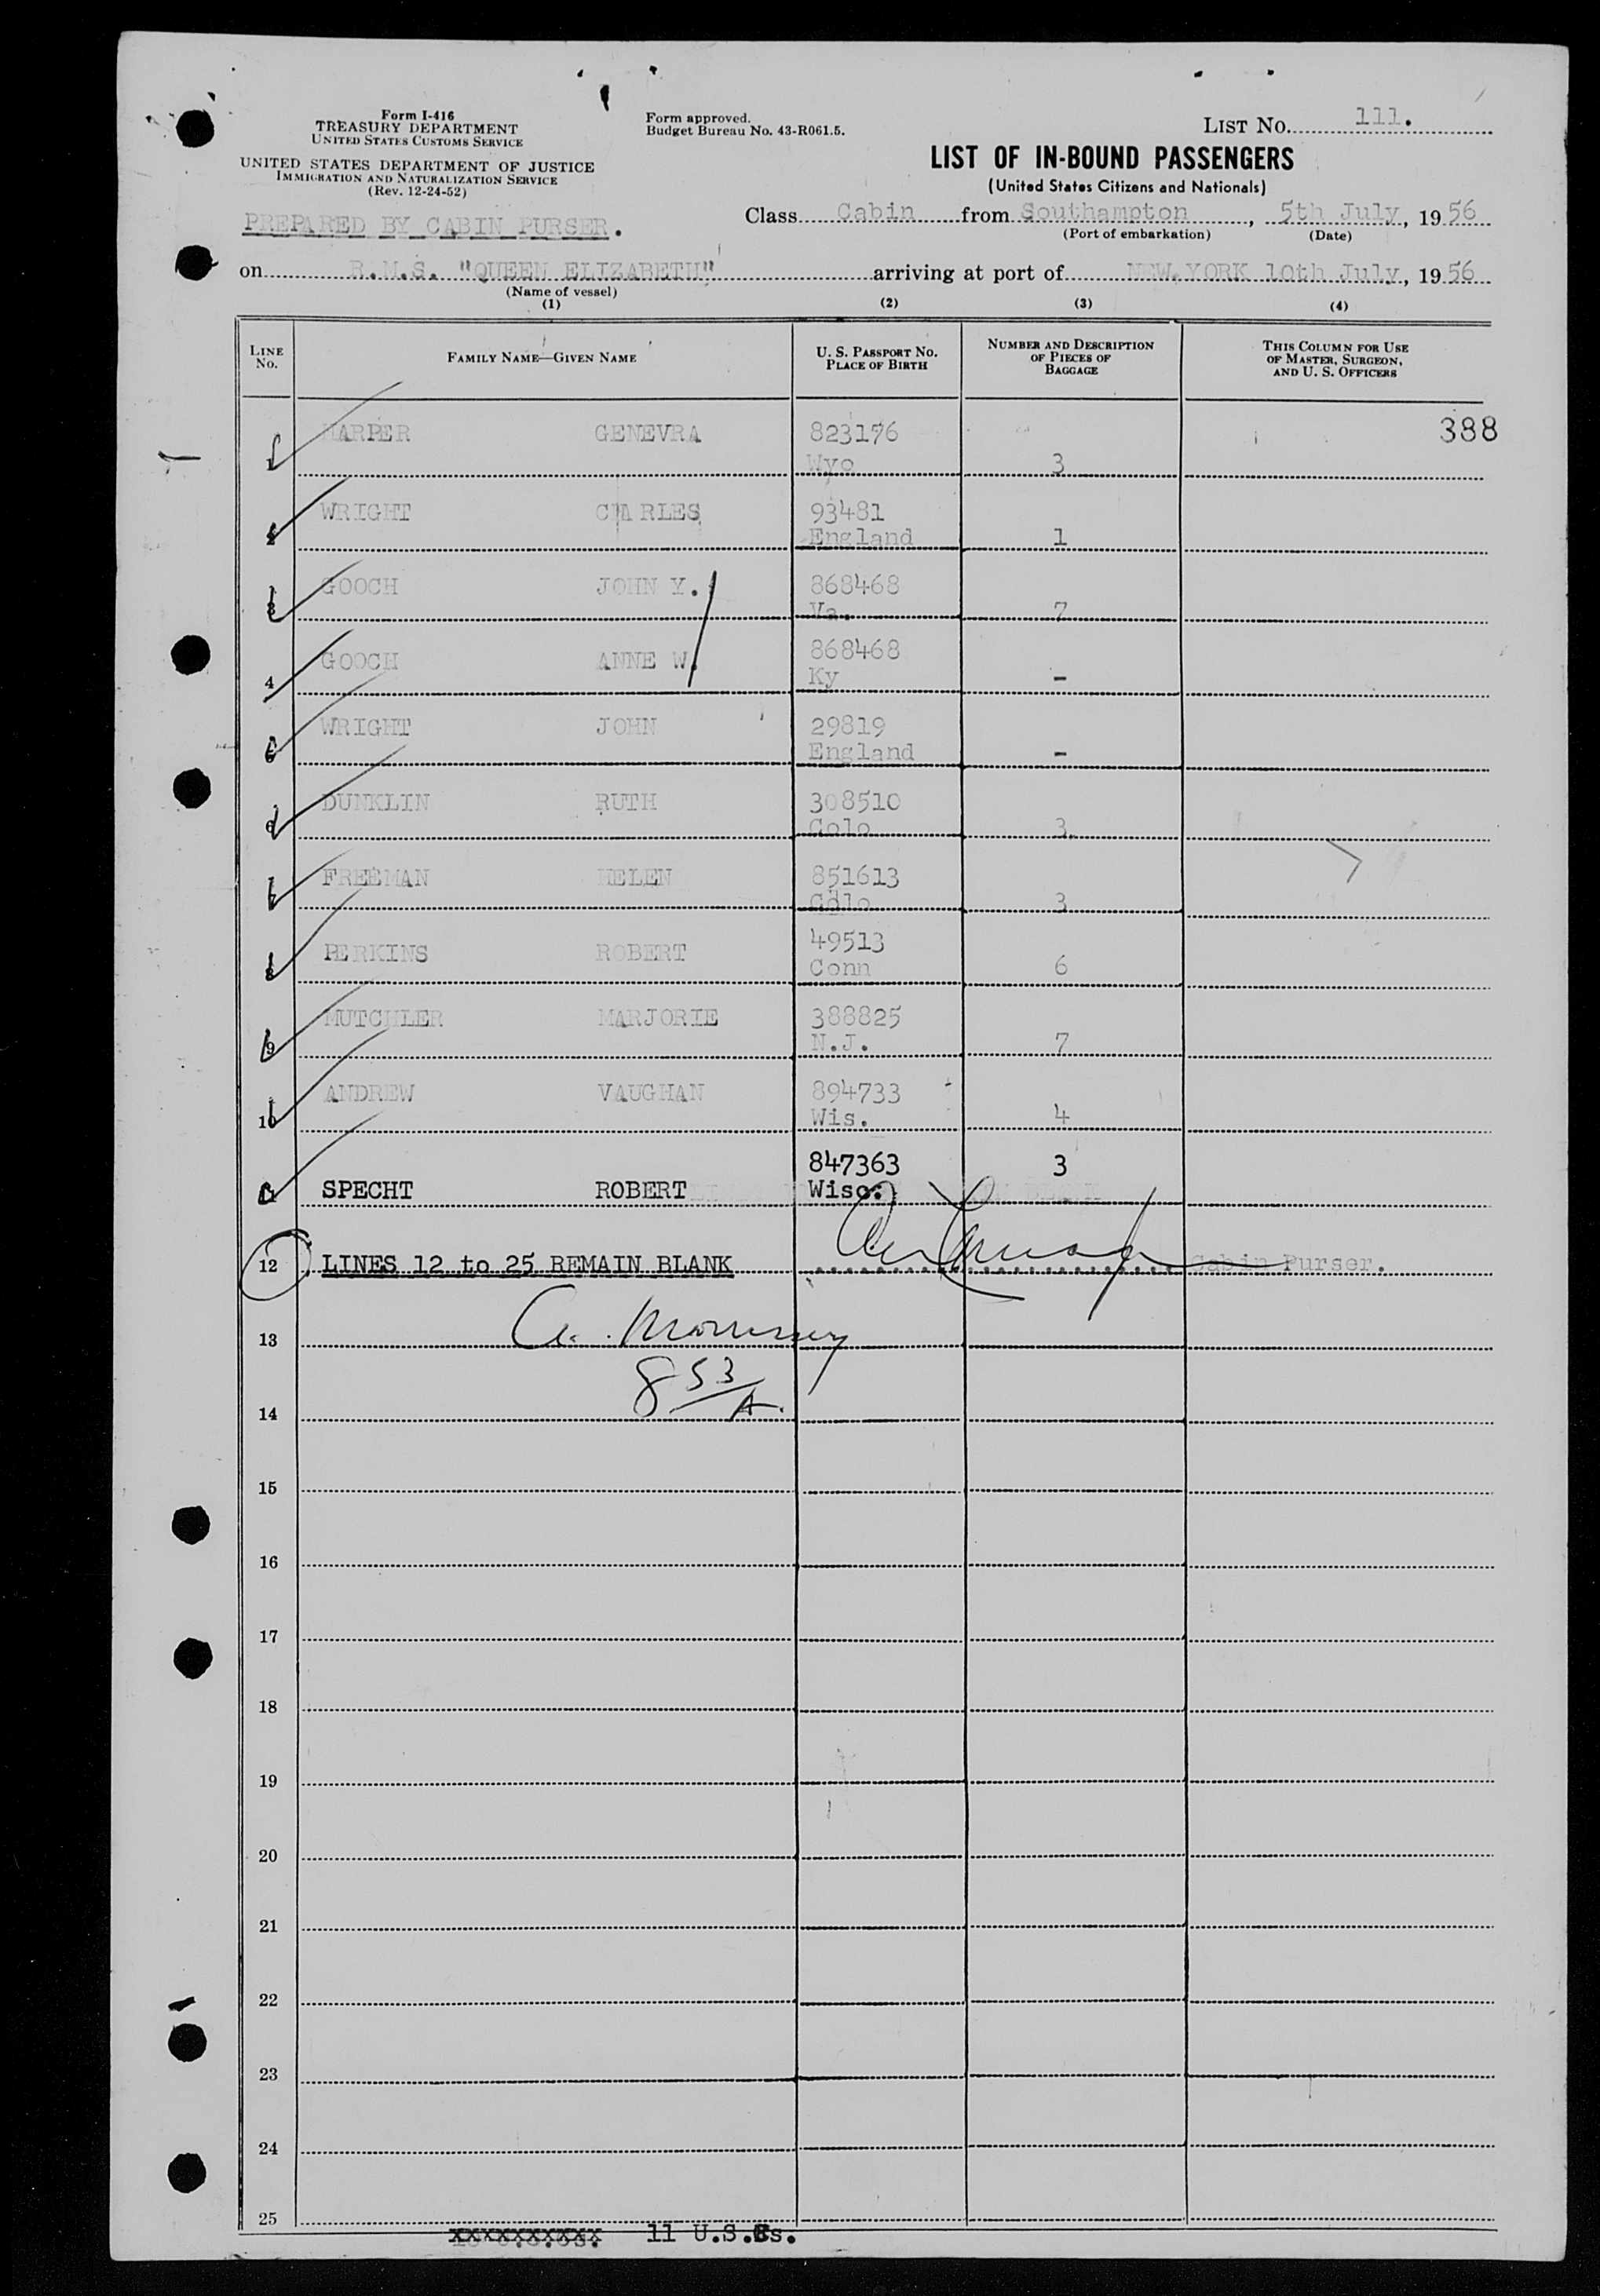 Form I-416
TREASURY DEPARTMENT
UNITED STATES CUSTOMS SERVICE
UNITED STATES DEPARTMENT OF JUSTICE
IMMIGRATION AND NATURALIZATION SERVICE
(Rev. 12-24-52)
PREPARED BY CABIN PURSER.
Form approved.
Budget Bureau No. 43-R061.5.
LIST No. 111.
LIST OF IN-BOUND PASSENGERS
(United States Citizens and Nationals)
Class Cabin from Southampton, 5th July, 1956
(Port of embarkation) (Date)
on R.M.S. "QUEEN ELIZABETH" arriving at port of NEW YORK 10th July, 1956
(Name of vessel)
(1) (2) (3) (4)
LINE No. FAMILY NAME—GIVEN NAME U. S. PASSPORT No. PLACE OF BIRTH NUMBER AND DESCRIPTION OF PIECES OF BAGGAGE THIS COLUMN FOR USE OF MASTER, SURGEON, AND U. S. OFFICERS
1 HARPER GENEVRA 823176 388
Wyo 3
2 WRIGHT CHARLES 93481
England 1
3 GOOCH JOHN Y. 868468
Va. 7
4 GOOCH ANNE W. 868468
Ky -
5 WRIGHT JOHN 29819
England -
6 DUNKLIN RUTH 308510
Colo 3
7 FREEMAN HELEN 851613
Colo 3
8 PERKINS ROBERT 49513
Conn 6
9 MUTCHLER MARJORIE 388825
N.J. 7
10 ANDREW VAUGHAN 894733
Wis. 4
847363 3
11 SPECHT ROBERT Wisc.
12 LINES 12 to 25 REMAIN BLANK Cabin Purser.
13
853/A.
14
15
16
17
18
19
20
21
22
23
24
25
xxxxxxxxxx 11 U.S.Cs.